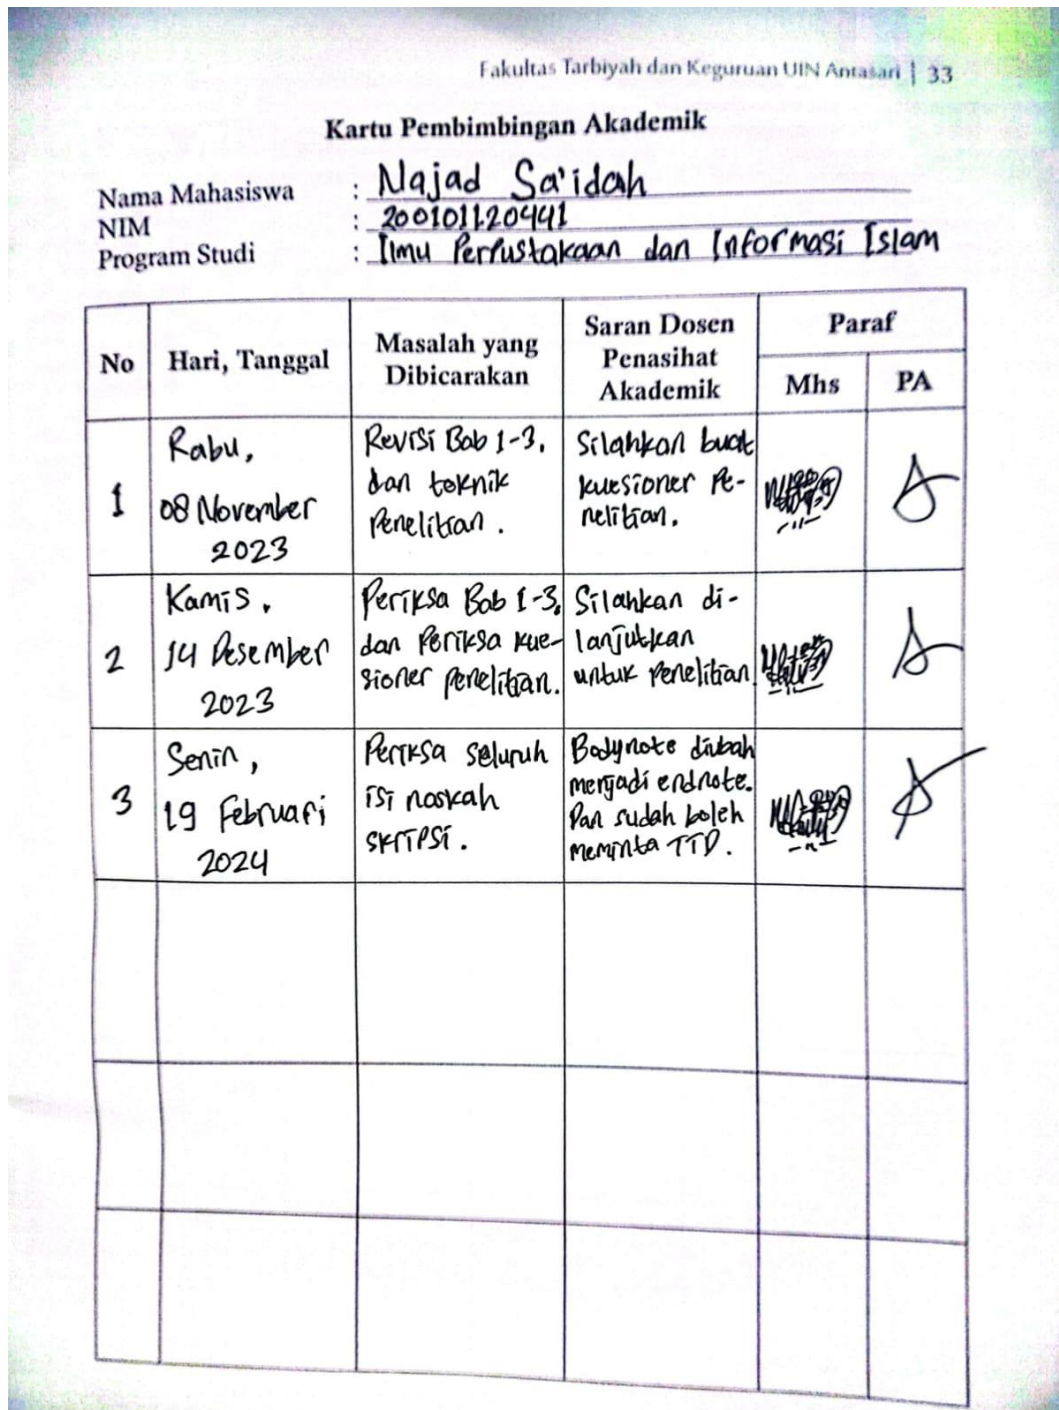 Fakultas Tarbiyah dan Keguruan UIN Antasari | 33
Kartu Pembimbingan Akademik
Nama Mahasiswa : Najad Sa'idah
NIM : 200101120441
Program Studi : Ilmu Perpustakaan dan Informasi Islam
No
Hari, Tanggal
Masalah yang
Dibicarakan
Saran Dosen
Penasihat
Akademik
Paraf
Mhs
PA
1
Rabu,
08 November
2023
Revisi Bab 1-3,
dan teknik
Penelitian.
Silahkan buat
kuesioner Pe-
nelitian.
2
Kamis,
14 Desember
2023
Periksa Bab 1-3,
dan Periksa kue-
sioner penelitian.
Silahkan di-
lanjutkan
untuk Penelitian
3
Senin,
19 Februari
2024
Periksa seluruh
isi naskah
skripsi.
Bodynote diubah
menjadi endnote.
Dan sudah boleh
meminta TTD.